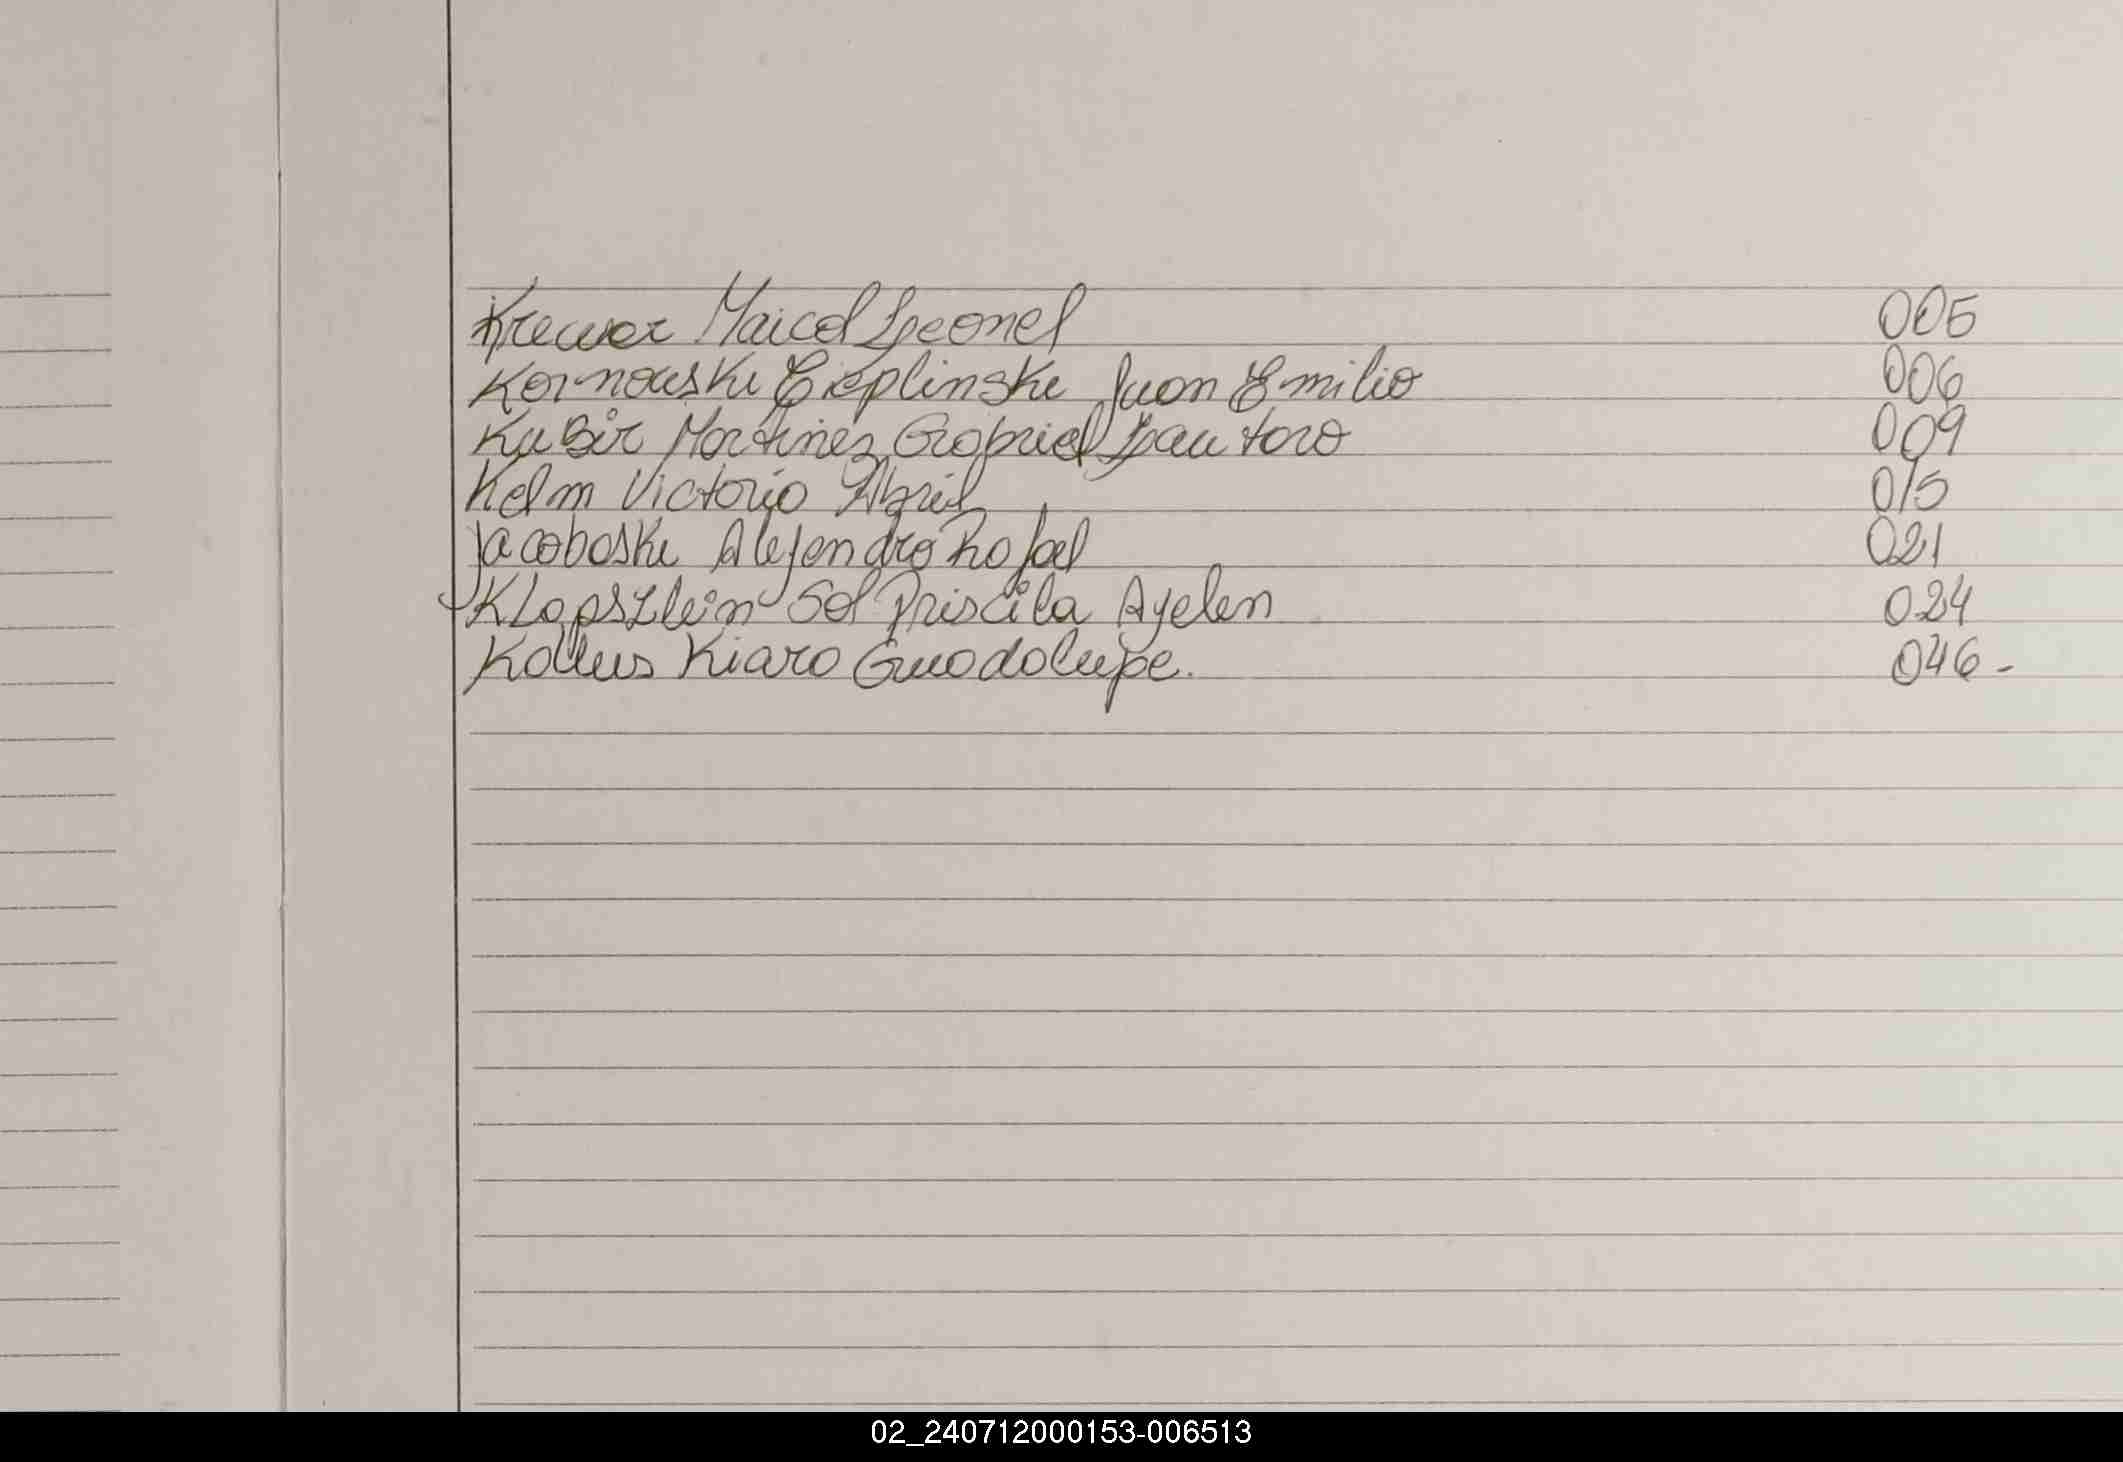 Krewer Maicol Leonel 005
Kornouski Cieplinski Juan Emilio 006
Kubir Martinez Gabriel Lautaro 009
Kelm Victoria Abril 015
Jacoboski Alejandro Rafael 021
Klopsztein Sol Priscila Ayelen 024
Kollus Kiara Guadalupe. 046-
02_240712000153-006513